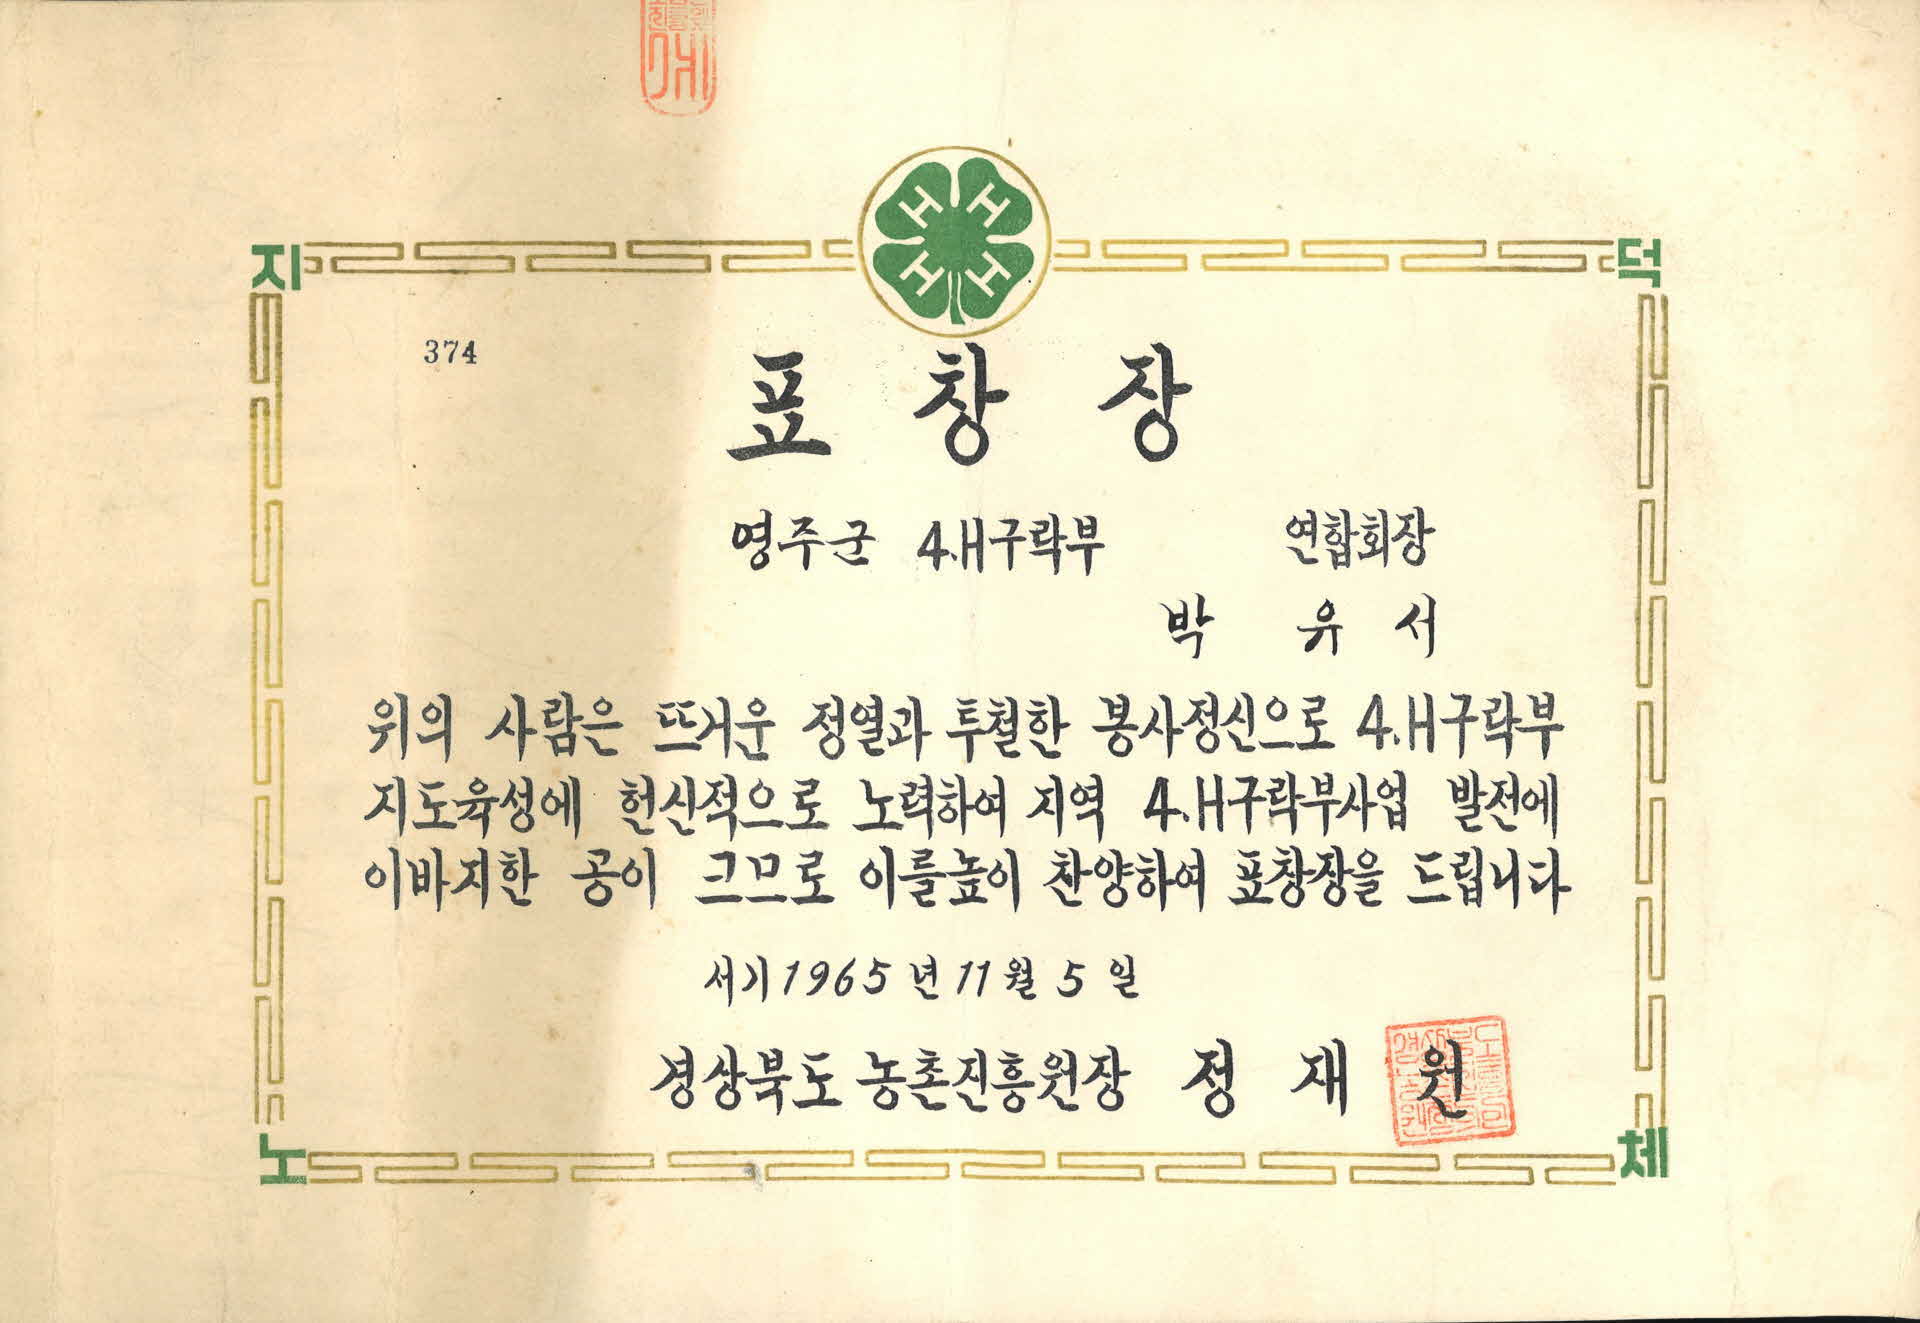 지 덕
H H H H
374
표 창 장
영주군 4.H구락부 연합회장
박 유 서
위의 사람은 뜨거운 정열과 투철한 봉사정신으로 4.H구락부
지도육성에 헌신적으로 노력하여 지역 4.H구락부사업 발전에
이바지한 공이 크므로 이를높이 찬양하여 표창장을 드립니다
서기 1965년 11월 5일
경상북도 농촌진흥원장 정 재 원
노 체